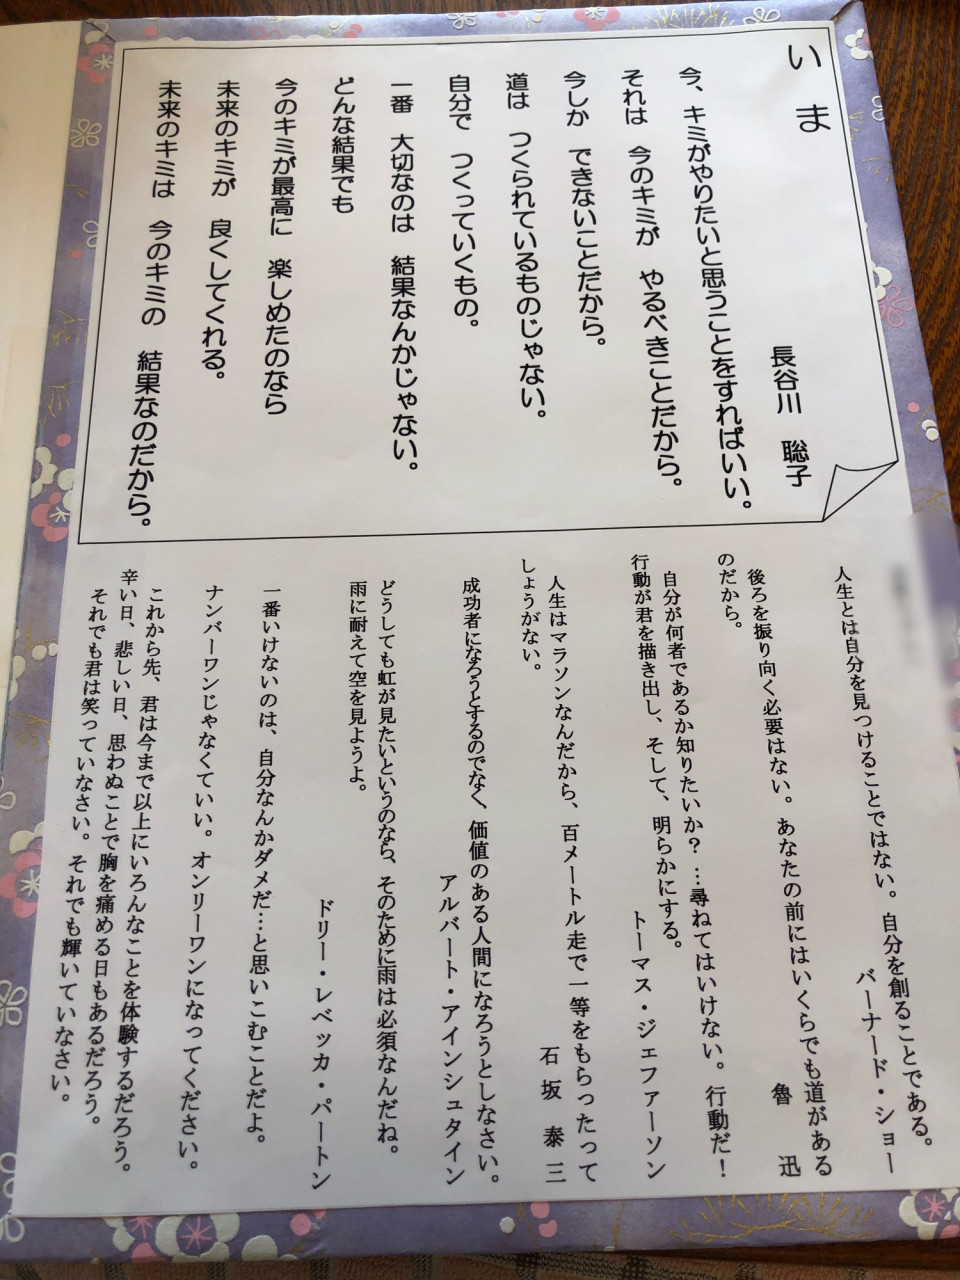 いま
長谷川 聡子
今、キミがやりたいと思うことをすればいい。
それは 今のキミが やるべきことだから。
今しか できないことだから。
道は つくられているものじゃない。
自分で つくっていくもの。
一番 大切なのは 結果なんかじゃない。
どんな結果でも
今のキミが最高に 楽しめたのなら
未来のキミが 良くしてくれる。
未来のキミは 今のキミの 結果なのだから。
人生とは自分を見つけることではない。自分を創ることである。
バーナード・ショー
後ろを振り向く必要はない。あなたの前にはいくらでも道がある
のだから。
魯 迅
自分が何者であるか知りたいか？…尋ねてはいけない。行動だ！
行動が君を描き出し、そして、明らかにする。
トーマス・ジェファーソン
人生はマラソンなんだから、百メートル走で一等をもらったって
しょうがない。
石 坂 泰 三
成功者になろうとするのでなく、価値のある人間になろうとしなさい。
アルバート・アインシュタイン
どうしても虹が見たいというのなら、そのために雨は必須なんだね。
雨に耐えて空を見ようよ。
ドリー・レベッカ・パートン
一番いけないのは、自分なんかダメだ…と思いこむことだよ。
ナンバーワンじゃなくていい。オンリーワンになってください。
これから先、君は今まで以上にいろんなことを体験するだろう。
辛い日、悲しい日、思わぬことで胸を痛める日もあるだろう。
それでも君は笑っていなさい。それでも輝いていなさい。